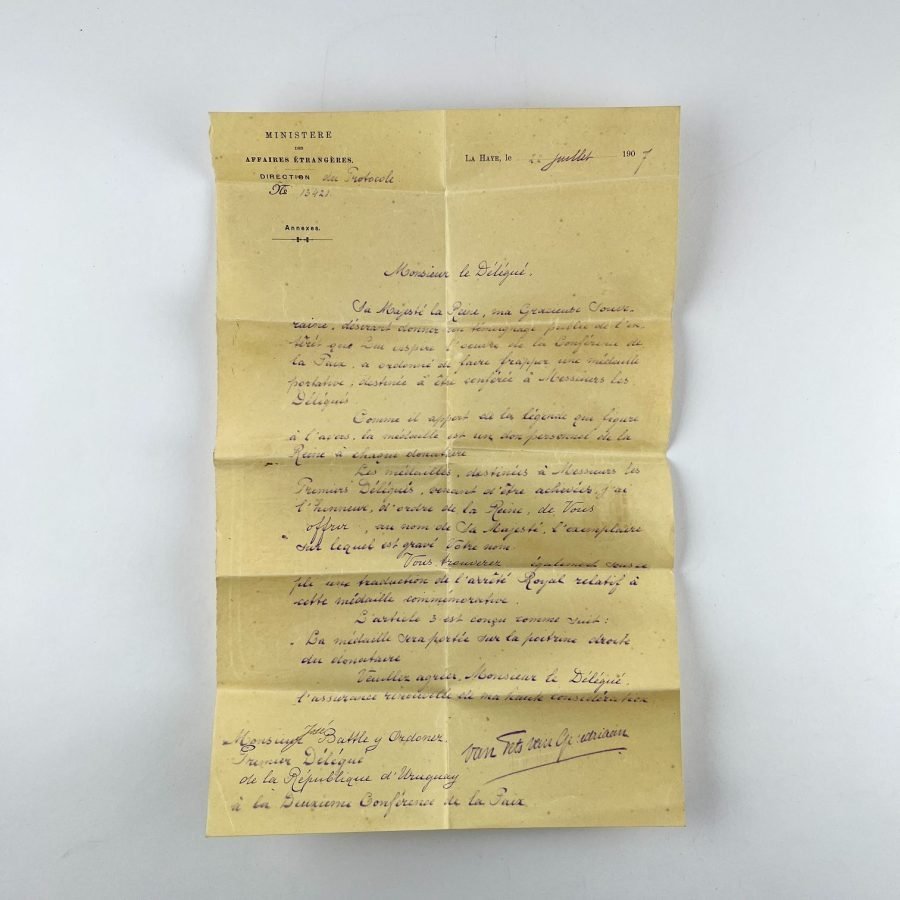 MINISTERE
DES
AFFAIRES ÉTRANGÈRES.
DIRECTION du Protocole
No 13421.
Annexes.
LA HAYE, le 22 juillet 1907
Monsieur le Délégué.
Sa Majesté la Reine, ma Gracieuse Souve-
raine, désirant donner un témoignage public de l'in-
térêt que Lui inspire l'oeuvre de la Conférence de
la Paix, a ordonné de faire frapper une médaille
portative, destinée à être conférée à Messieurs les
Délégués.
Comme il appert de la légende qui figure
à l'avers, la médaille est un don personnel de la
Reine à chaque donataire
Les médailles, destinées à Messieurs les
Premiers Délégués, venant d'être achevées, j'ai
l'honneur, d'ordre de la Reine, de Vous
offrir, au nom de Sa Majesté, l'exemplaire
sur lequel est gravé Votre nom.
Vous trouverez également sous ce
pli une traduction de l'arrêté Royal relatif à
cette médaille commémorative.
L'article 3 est conçu comme suit:
La médaille sera portée sur la poitrine droite
du donataire
Veuillez agréer, Monsieur le Délégué,
l'assurance de ma haute considération
van Tets van Goudriaan
Monsieur José Batlle y Ordonez
Premier Délégué
de la République d'Uruguay
à la Deuxième Conférence de la Paix